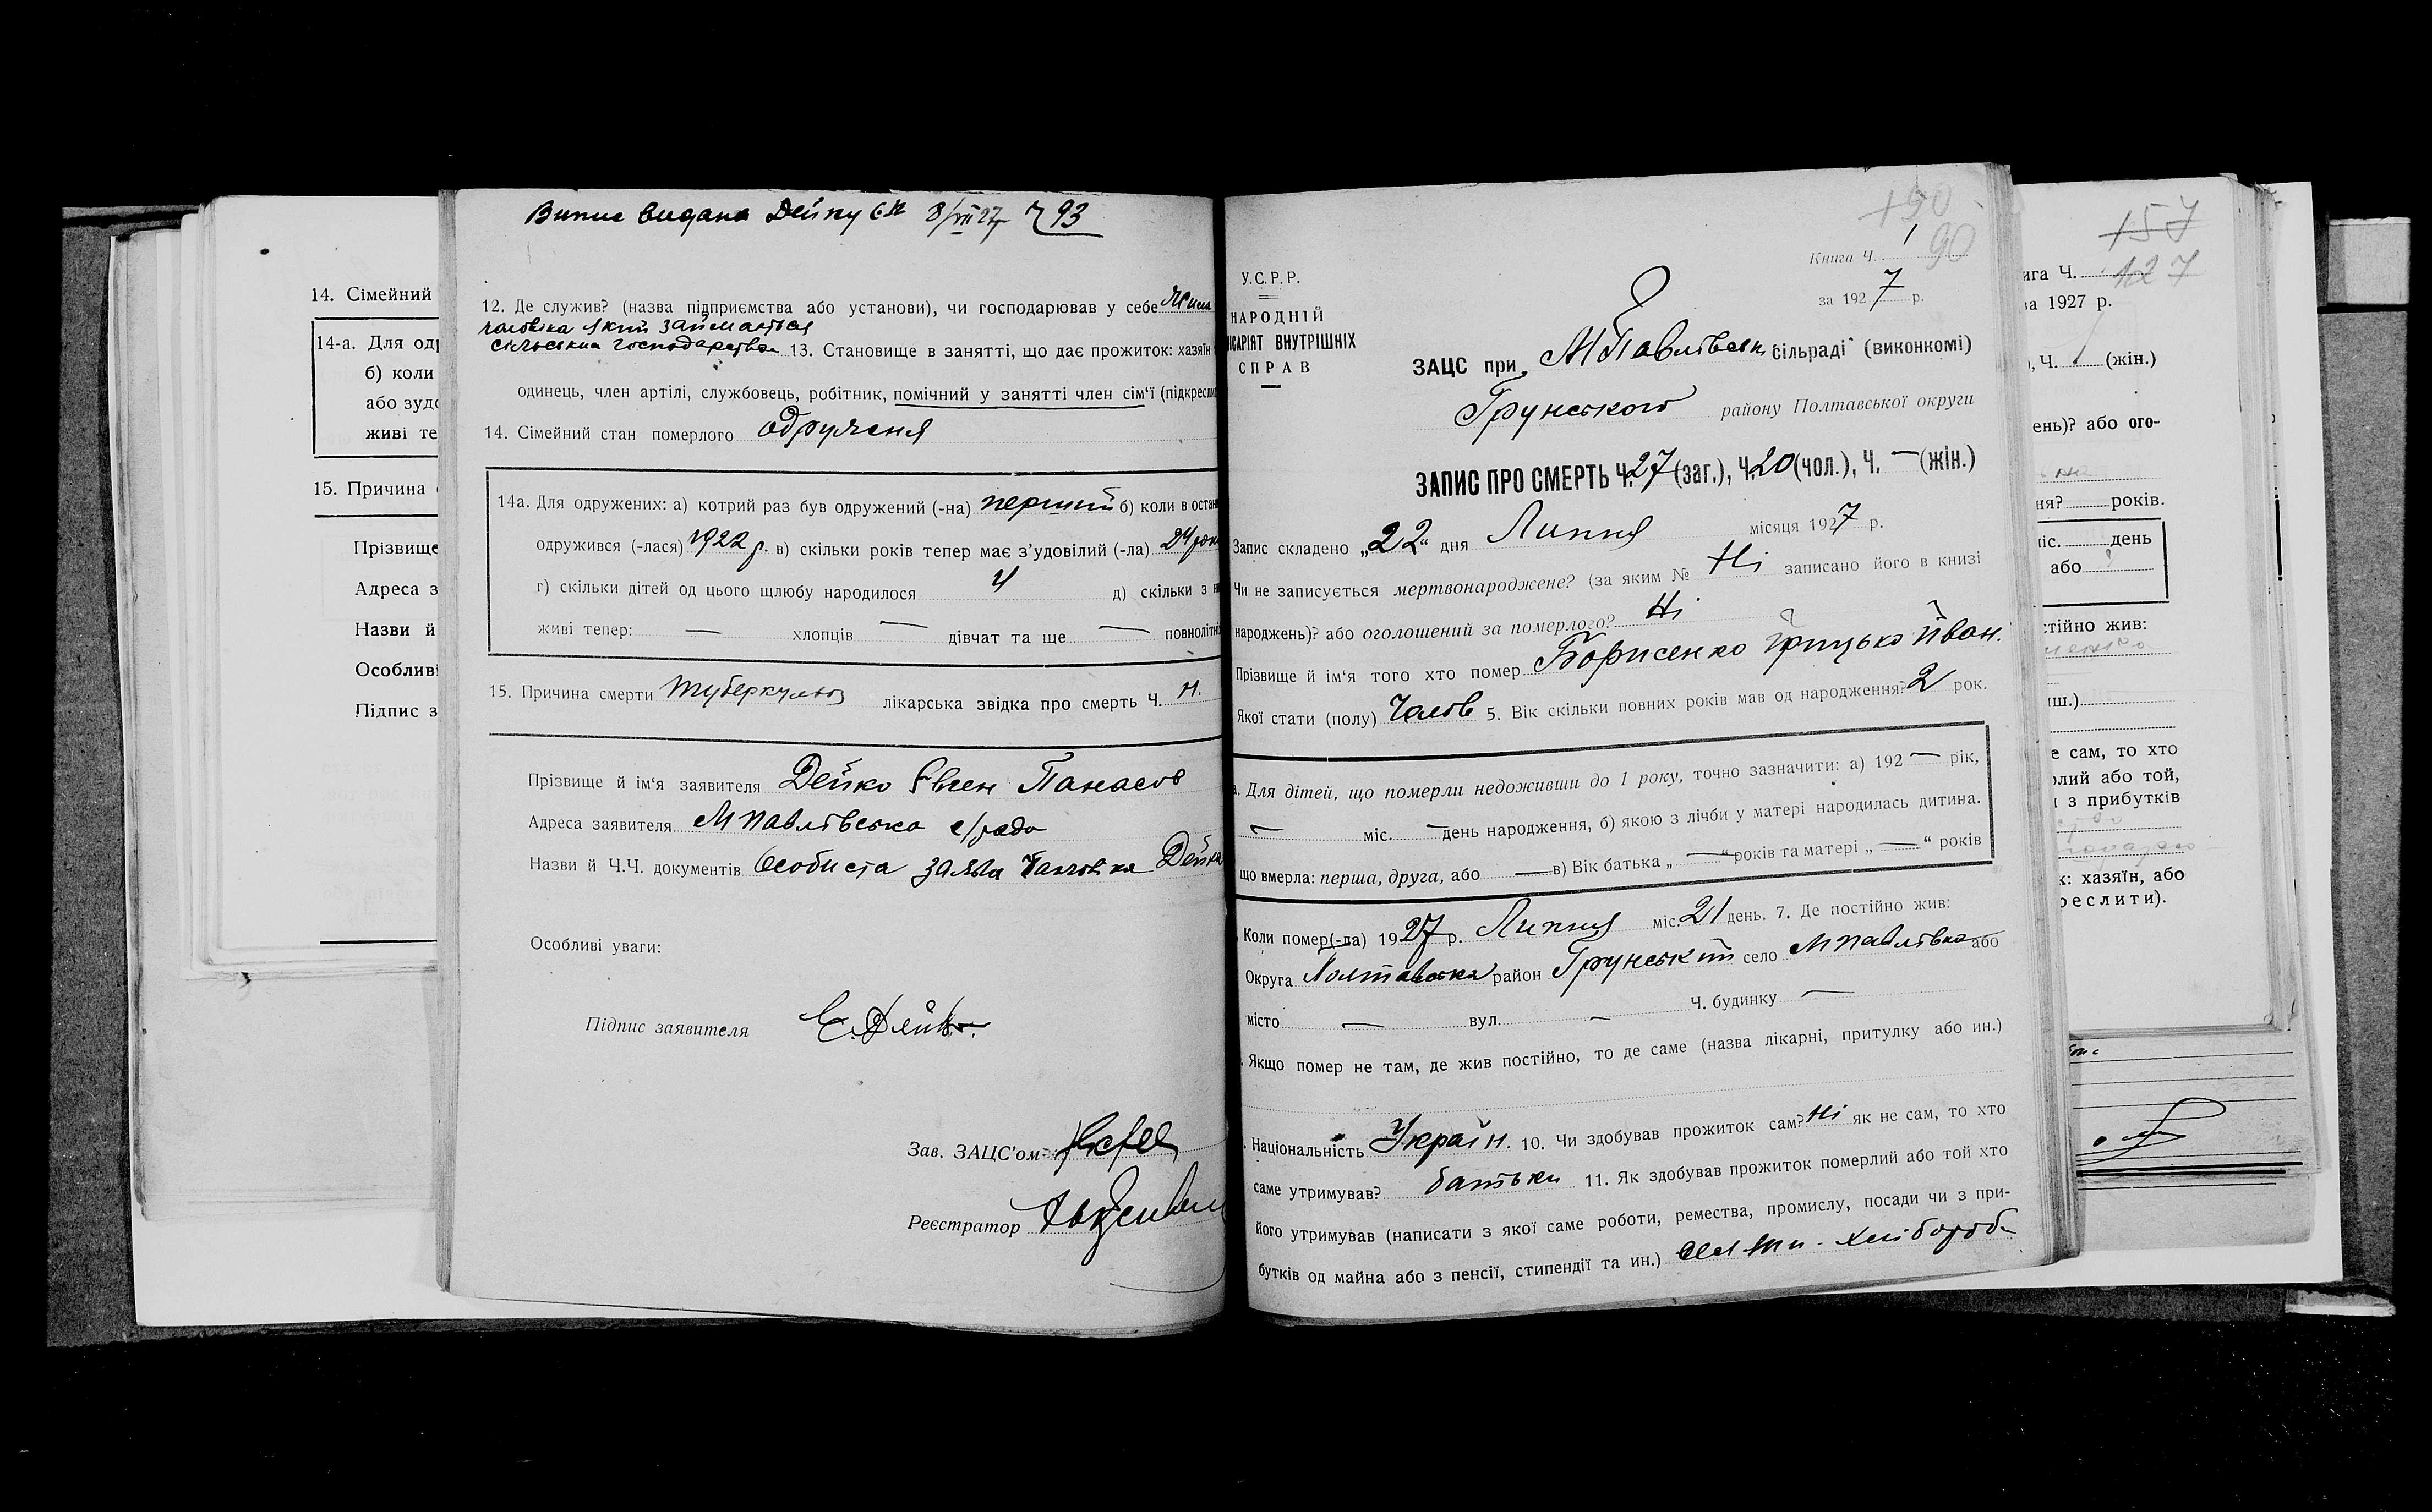 14. Сімейний
14-а. Для од
б) коли
або зудо
живі те
15. Причина
Прізвище
Адреса з
Назви й
Особливі
Підпис з
Випис видана Дейку Є.П. 8/VII 27 р 793
12. Де служив? (назва підприємства або установи), чи господарював у себе Жила
чоловіка який займається
сільським господарством 13. Становище в занятті, що дає прожиток: хазяїн
одинець, член артілі, службовець, робітник, помічний у занятті член сім'ї (підкресли
14. Сімейний стан померлого одруженя
14а. Для одружених: а) котрий раз був одружений (-на) перший б) коли в остан
одружився (-лася) 1922 р. в) скільки років тепер має з'удовілий (-ла) 24 рок
г) скільки дітей од цього щлюбу народилося 4 д) скільки з н
живі тепер: — хлопців — дівчат та ще — повнолітн
15. Причина смерти туберкульоз лікарська звідка про смерть Ч. н.
Прізвище й ім'я заявителя Дейко Євген Панасов
Адреса заявителя М павлівська с/рада
Назви й Ч.Ч. документів Особиста заява Дейка
Особливі уваги:
Підпис заявителя Є. Дейко
Зав. ЗАЦС'ом
Реєстратор
190
90
Книга Ч. 1
за 1927 р.
У.С.Р.Р.
НАРОДНІЙ
ІСАРІЯТ ВНУТРІШНІХ
СПРАВ
ЗАЦС при М Павлівськ сільраді (виконкомі)
Грунського району Полтавської округи
ЗАПИС ПРО СМЕРТЬ Ч. 27 (заг.), Ч. 20 (чол.), Ч. — (жін.)
Запис складено „22" дня Липня місяця 1927 р.
Чи не записується мертвонароджене? (за яким № Ні записано його в книзі
народжень)? або оголошений за померлого? Ні
Прізвище й ім'я того хто помер Борисенко Грицько Иван.
Якої стати (полу) Чолов 5. Вік скільки повних років мав од народження? 2 рок.
а. Для дітей, що померли недоживши до 1 року, точно зазначити: а) 192 — рік,
— міс. — день народження, б) якою з лічби у матері народилась дитина.
що вмерла: перша, друга, або — в) Вік батька „ — " років та матері „ — " років
Коли помер(-ла) 1927 р. Липня міс. 21 день. 7. Де постійно жив:
Округа Полтавська район Грунський село М павлівка або
місто — вул. — Ч. будинку —
Якщо помер не там, де жив постійно, то де саме (назва лікарні, притулку або ин.)
Національність Україн. 10. Чи здобував прожиток сам? Ні як не сам, то хто
саме утримував? батьки 11. Як здобував прожиток померлий або той хто
його утримував (написати з якої саме роботи, ремества, промислу, посади чи з при-
бутків од майна або з пенсії, стипендії та ин.) хлібороб
157
127
ига Ч.
а 1927 р.
), Ч. (жін.)
ень)? або ого-
ня? років.
іс. день
або
стійно жив:
иш.)
е сам, то хто
рлий або той,
и з прибутків
к: хазяїн, або
реслити).